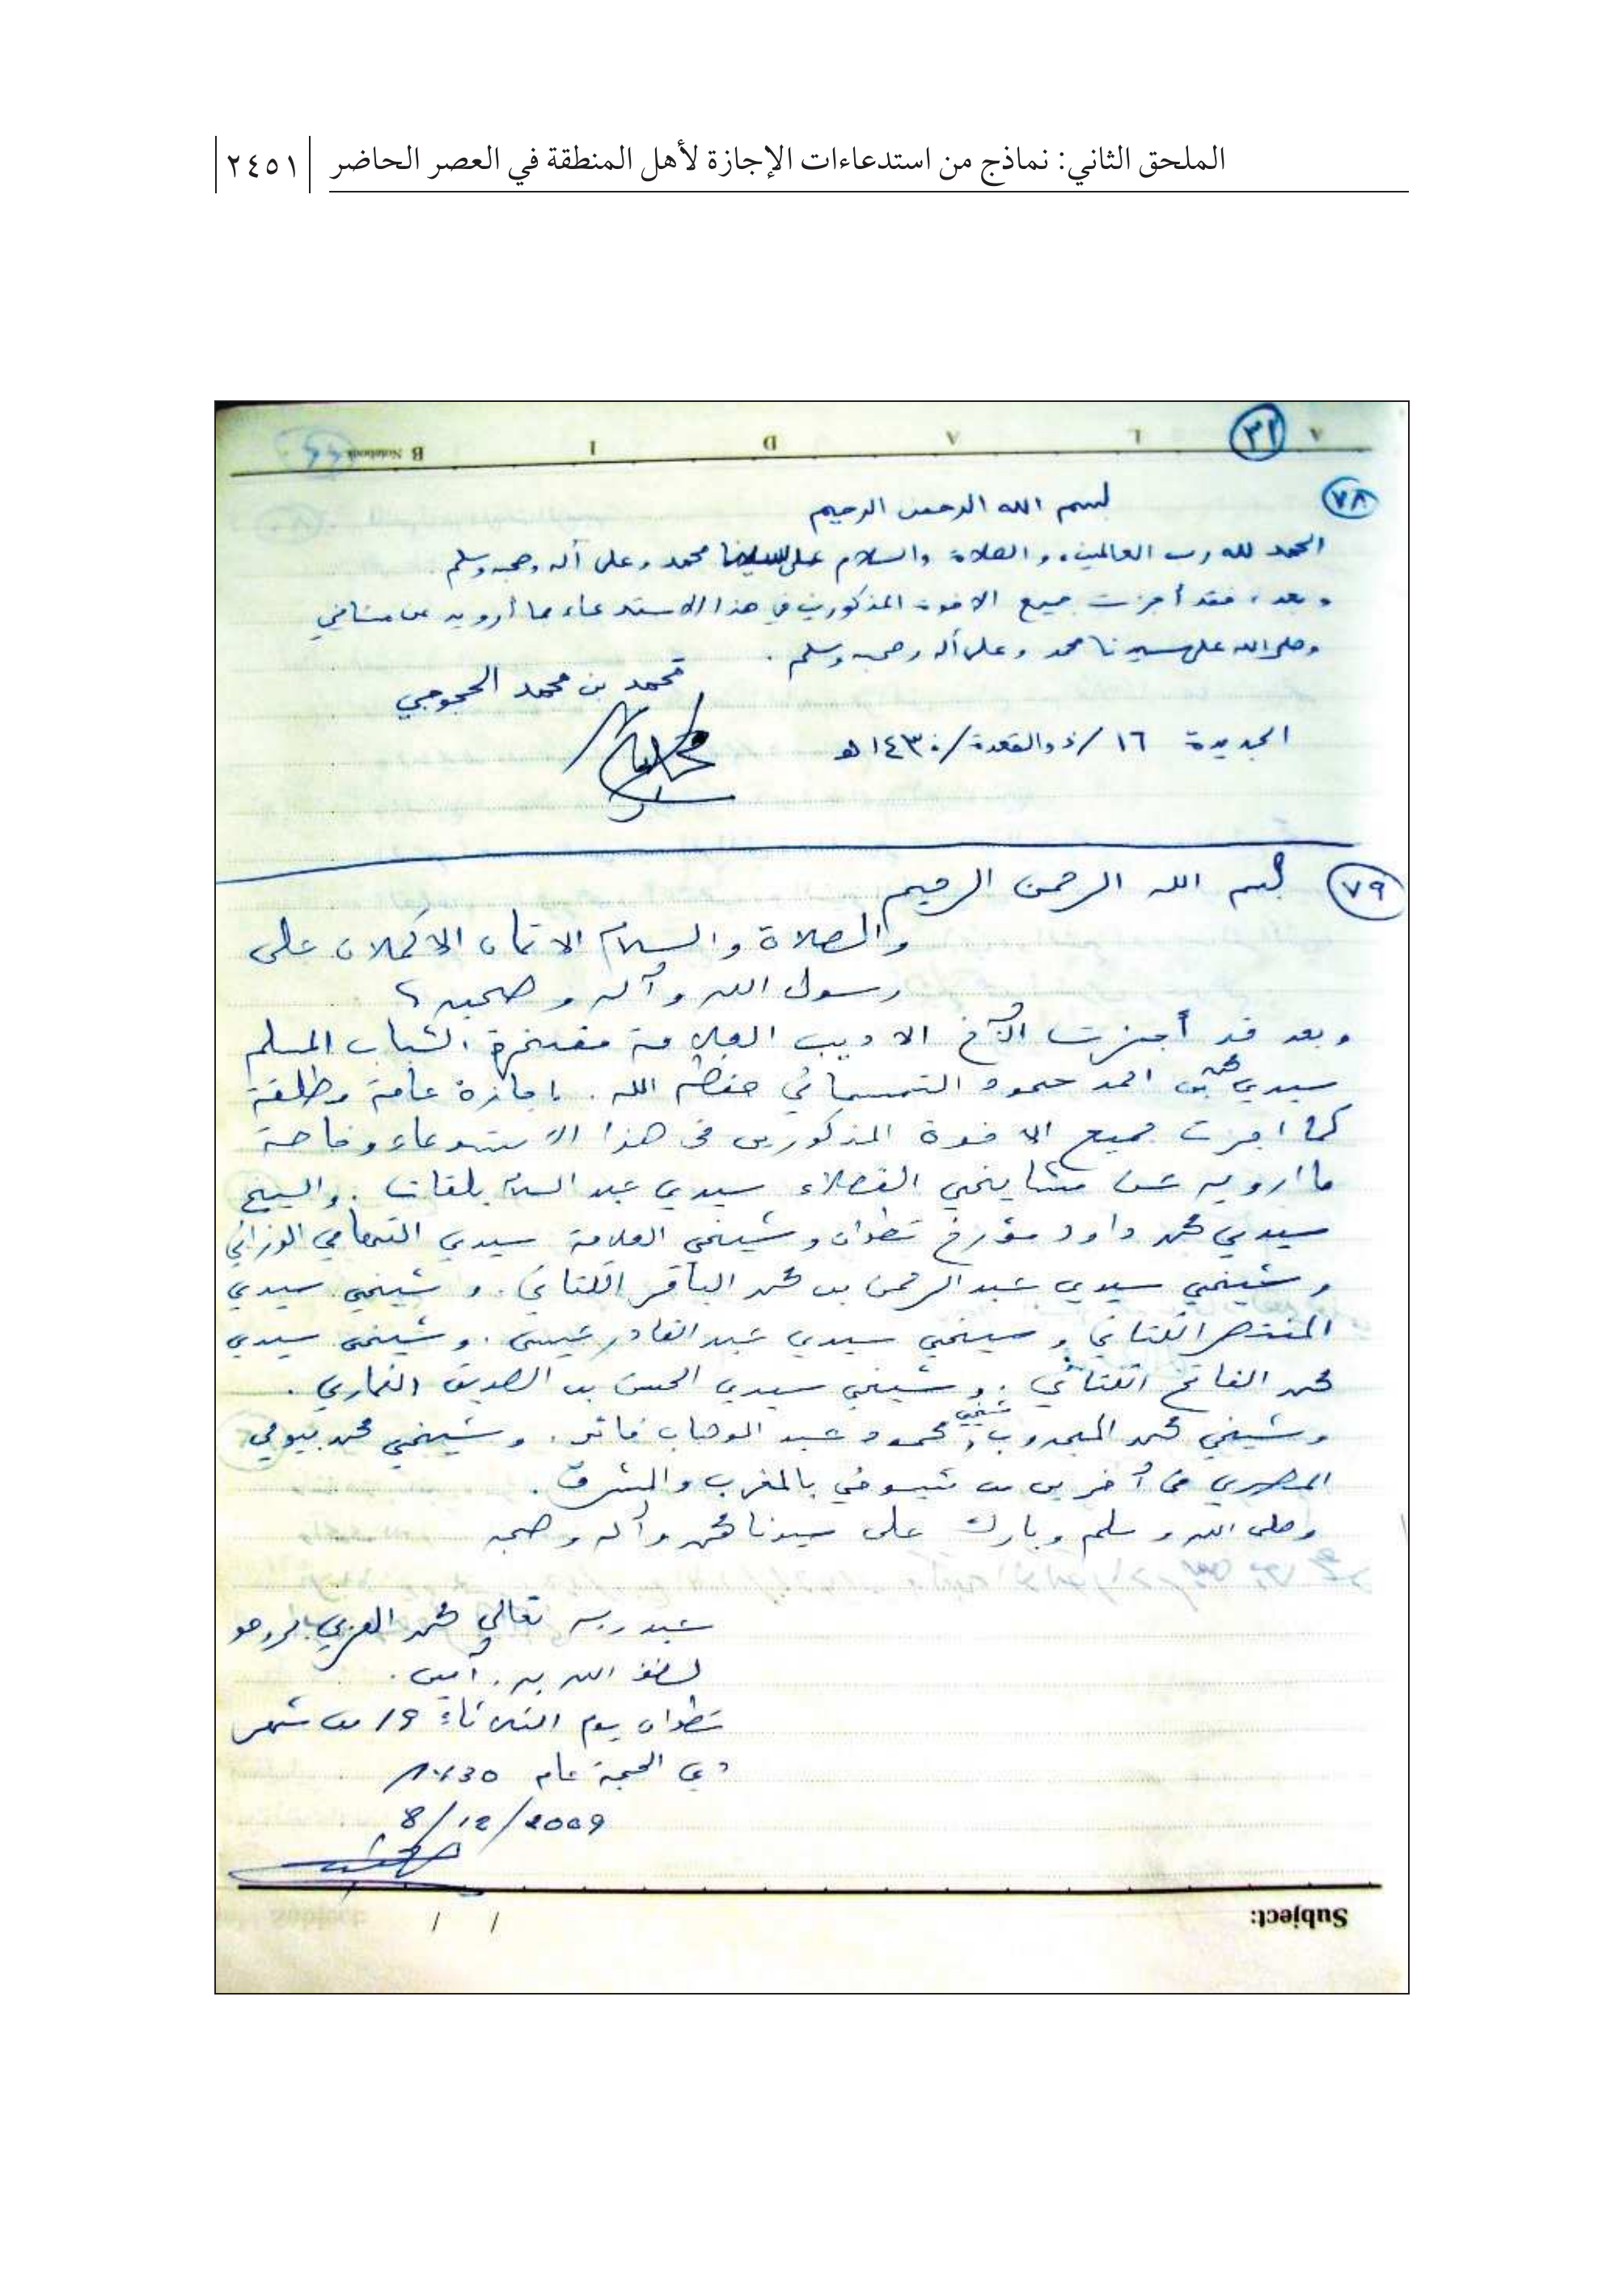 الملحق الثاني: نماذج من استدعاءات الإجازة لأهل المنطقة في العصر الحاضر ٢٤٥١
٣١
B Notebook
٧٨
بسم الله الرحمن الرحيم
الحمد لله رب العالمين، والصلاة والسلام على سيدنا محمد وعلى آله وصحبه وسلم.
وبعد، فقد أجزت جميع الاخوة المذكورين في هذا الاستدعاء بما أرويه عن مشايخي
وصلى الله على سيدنا محمد وعلى آله وصحبه وسلم.
محمد بن محمد الحجوجي
الجديدة ١٦/ذوالقعدة/١٤٣٠هـ
٧٩
بسم الله الرحمن الرحيم
والصلاة والسلام الاتمان الاكملان على
رسول الله وآله وصحبه
وبعد قد أجزت الأخ الاديب العلامة مفخرة الشباب المسلم
سيدي احمد حمود التمسماني حفظه الله. اجازة عامة مطلقة
كما اجزت جميع الاخوة المذكورين في هذا الاستدعاء وخاصة
ما ارويه عن مشايخي الفضلاء سيدي عبد السلام بلقات. والشيخ
سيدي محمد داود مؤرخ تطوان وشيخي العلامة سيدي التهامي الوزاني
وشيخي سيدي عبد الرحمن بن محمد الباقر الكتاني. وشيخي سيدي
المنتصر الكتاني وشيخي سيدي عبد القادر عيسى. وشيخي سيدي
محمد الفاتح الكتاني. وشيخي سيدي الحسن بن الصديق الغماري.
وشيخي محمد المجدوب، وشيخي محمود عبد الوهاب فائد. وشيخي محمد بيومي
المصري في آخرين من شيوخي بالمغرب والمشرق.
وصلى الله وسلم وبارك على سيدنا محمد وآله وصحبه
عبد ربه تعالى محمد العربي
لطف الله به. آمين.
تطوان يوم الثلاثاء 19 من شهر
ذي الحجة عام 1430
8/12/2009
Subject: